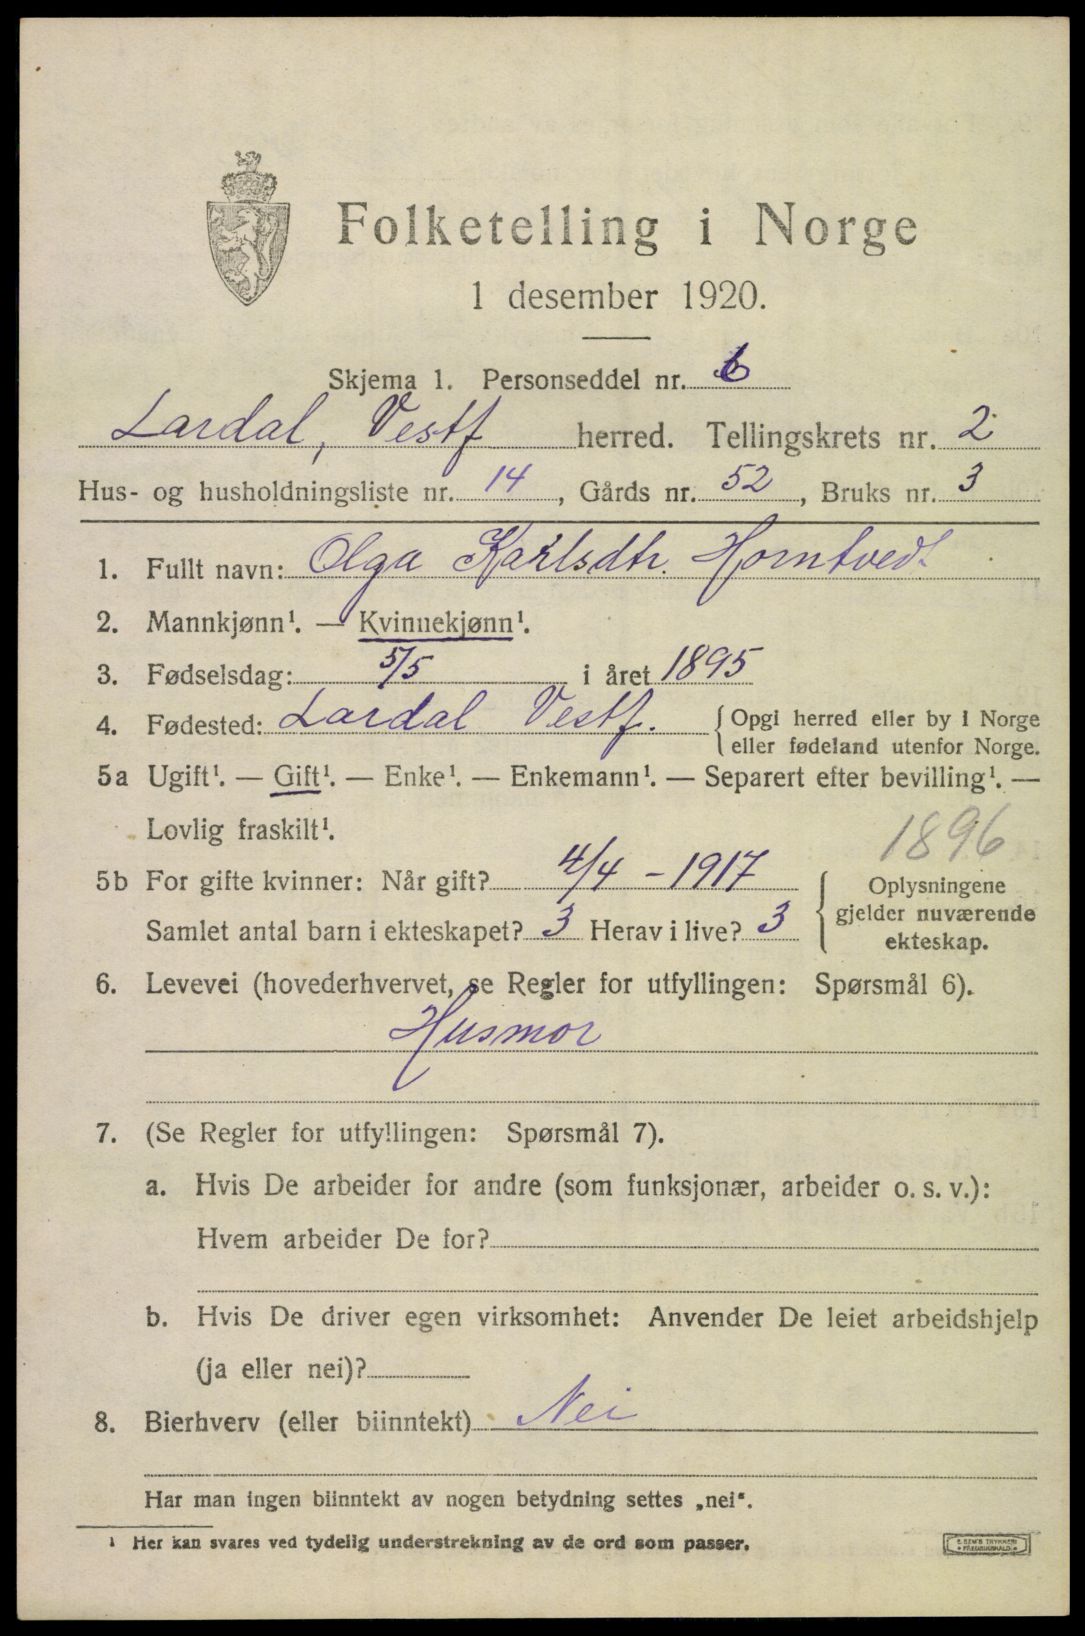 Folketelling i Norge
1 desember 1920.
Skjema 1. Personseddel nr. 6
Lardal, Vestf herred. Tellingskrets nr. 2
Hus- og husholdningsliste nr. 14, Gårds nr. 52, Bruks nr. 3
1. Fullt navn: Olga Karlsdtr. Horntvedt
2. Mannkjønn¹. — Kvinnekjønn¹.
3. Fødselsdag: 5/5 i året 1895
4. Fødested: Lardal Vestf. { Opgi herred eller by i Norge
eller fødeland utenfor Norge.
5a Ugift¹. — Gift¹. — Enke¹. — Enkemann¹. — Separert efter bevilling¹. —
Lovlig fraskilt¹.
1896
5b For gifte kvinner: Når gift? 4/4 - 1917
Samlet antal barn i ekteskapet? 3 Herav i live? 3
Oplysningene
gjelder nuværende
ekteskap.
6. Levevei (hovederhvervet, se Regler for utfyllingen: Spørsmål 6).
Husmor
7. (Se Regler for utfyllingen: Spørsmål 7).
a. Hvis De arbeider for andre (som funksjonær, arbeider o. s. v.):
Hvem arbeider De for?
b. Hvis De driver egen virksomhet: Anvender De leiet arbeidshjelp
(ja eller nei)?
8. Bierhverv (eller biinntekt) Nei
Har man ingen biinntekt av nogen betydning settes „nei“.
¹ Her kan svares ved tydelig understrekning av de ord som passer.